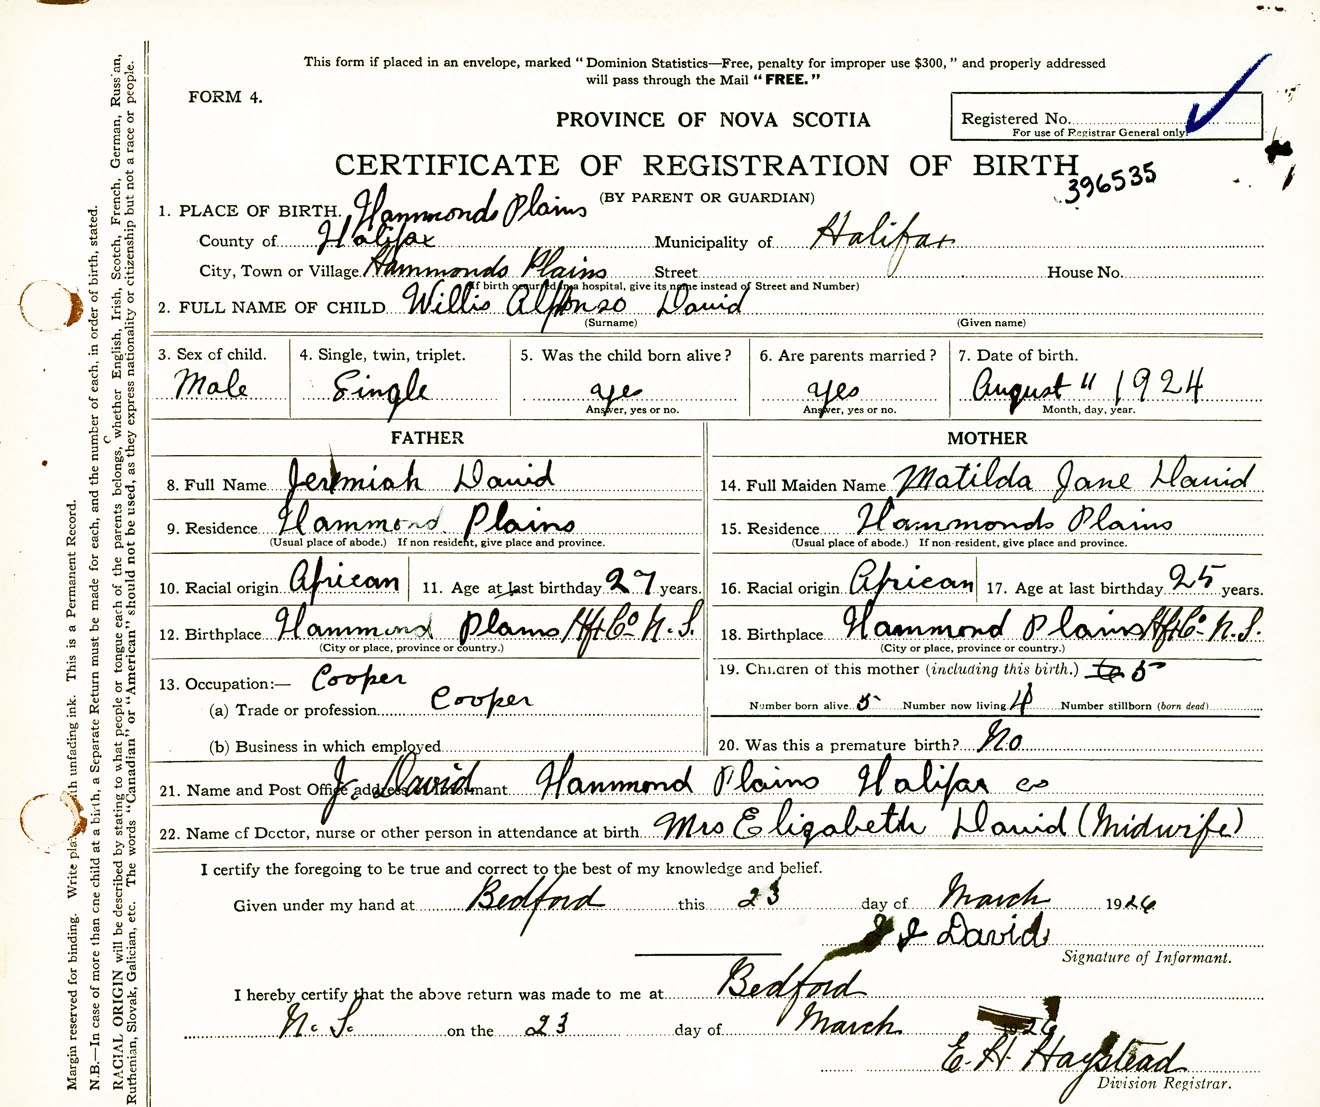 This form if placed in an envelope, marked “Dominion Statistics—Free, penalty for improper use $300,” and properly addressed
will pass through the Mail “FREE.”
FORM 4.
PROVINCE OF NOVA SCOTIA
Registered No.
For use of Registrar General only
CERTIFICATE OF REGISTRATION OF BIRTH
396535
(BY PARENT OR GUARDIAN)
1. PLACE OF BIRTH. Hammonds Plains
County of Halifax Municipality of Halifax
City, Town or Village Hammonds Plains Street House No.
(If birth occurred in a hospital, give its name instead of Street and Number)
2. FULL NAME OF CHILD Willis Alfonso David
(Surname) (Given name)
3. Sex of child. 4. Single, twin, triplet. 5. Was the child born alive? 6. Are parents married? 7. Date of birth.
Male Single yes yes August 11 1924
Answer, yes or no. Answer, yes or no. Month, day, year.
FATHER MOTHER
8. Full Name Jeremiah David 14. Full Maiden Name Matilda Jane David
9. Residence Hammond Plains 15. Residence Hammonds Plains
(Usual place of abode.) If non resident, give place and province. (Usual place of abode.) If non-resident, give place and province.
10. Racial origin African 11. Age at last birthday 27 years. 16. Racial origin African 17. Age at last birthday 25 years.
12. Birthplace Hammond Plains Hfx Co N.S. 18. Birthplace Hammond Plains Hfx Co N.S.
(City or place, province or country.) (City or place, province or country.)
13. Occupation:— Cooper 19. Children of this mother (including this birth.) 5
(a) Trade or profession Cooper Number born alive 5 Number now living 4 Number stillborn (born dead)
(b) Business in which employed 20. Was this a premature birth? No
21. Name and Post Office address of Informant J. David Hammond Plains Halifax co
22. Name of Doctor, nurse or other person in attendance at birth Mrs Elizabeth David (Midwife)
I certify the foregoing to be true and correct to the best of my knowledge and belief.
Given under my hand at Bedford this 23 day of March 1926
J J David
Signature of Informant.
I hereby certify that the above return was made to me at Bedford
N. S. on the 23 day of March 1926
E. H. Haystead
Division Registrar.
Margin reserved for binding. Write plainly with unfading ink. This is a Permanent Record.
N.B.—In case of more than one child at a birth, a Separate Return must be made for each, and the number of each, in order of birth, stated.
RACIAL ORIGIN will be described by stating to what people or tongue each of the parents belongs, whether English, Irish, Scotch, French, German, Russian,
Ruthenian, Slovak, Galician, etc. The words “Canadian” or “American” should not be used, as they express nationality or citizenship but not a race or people.